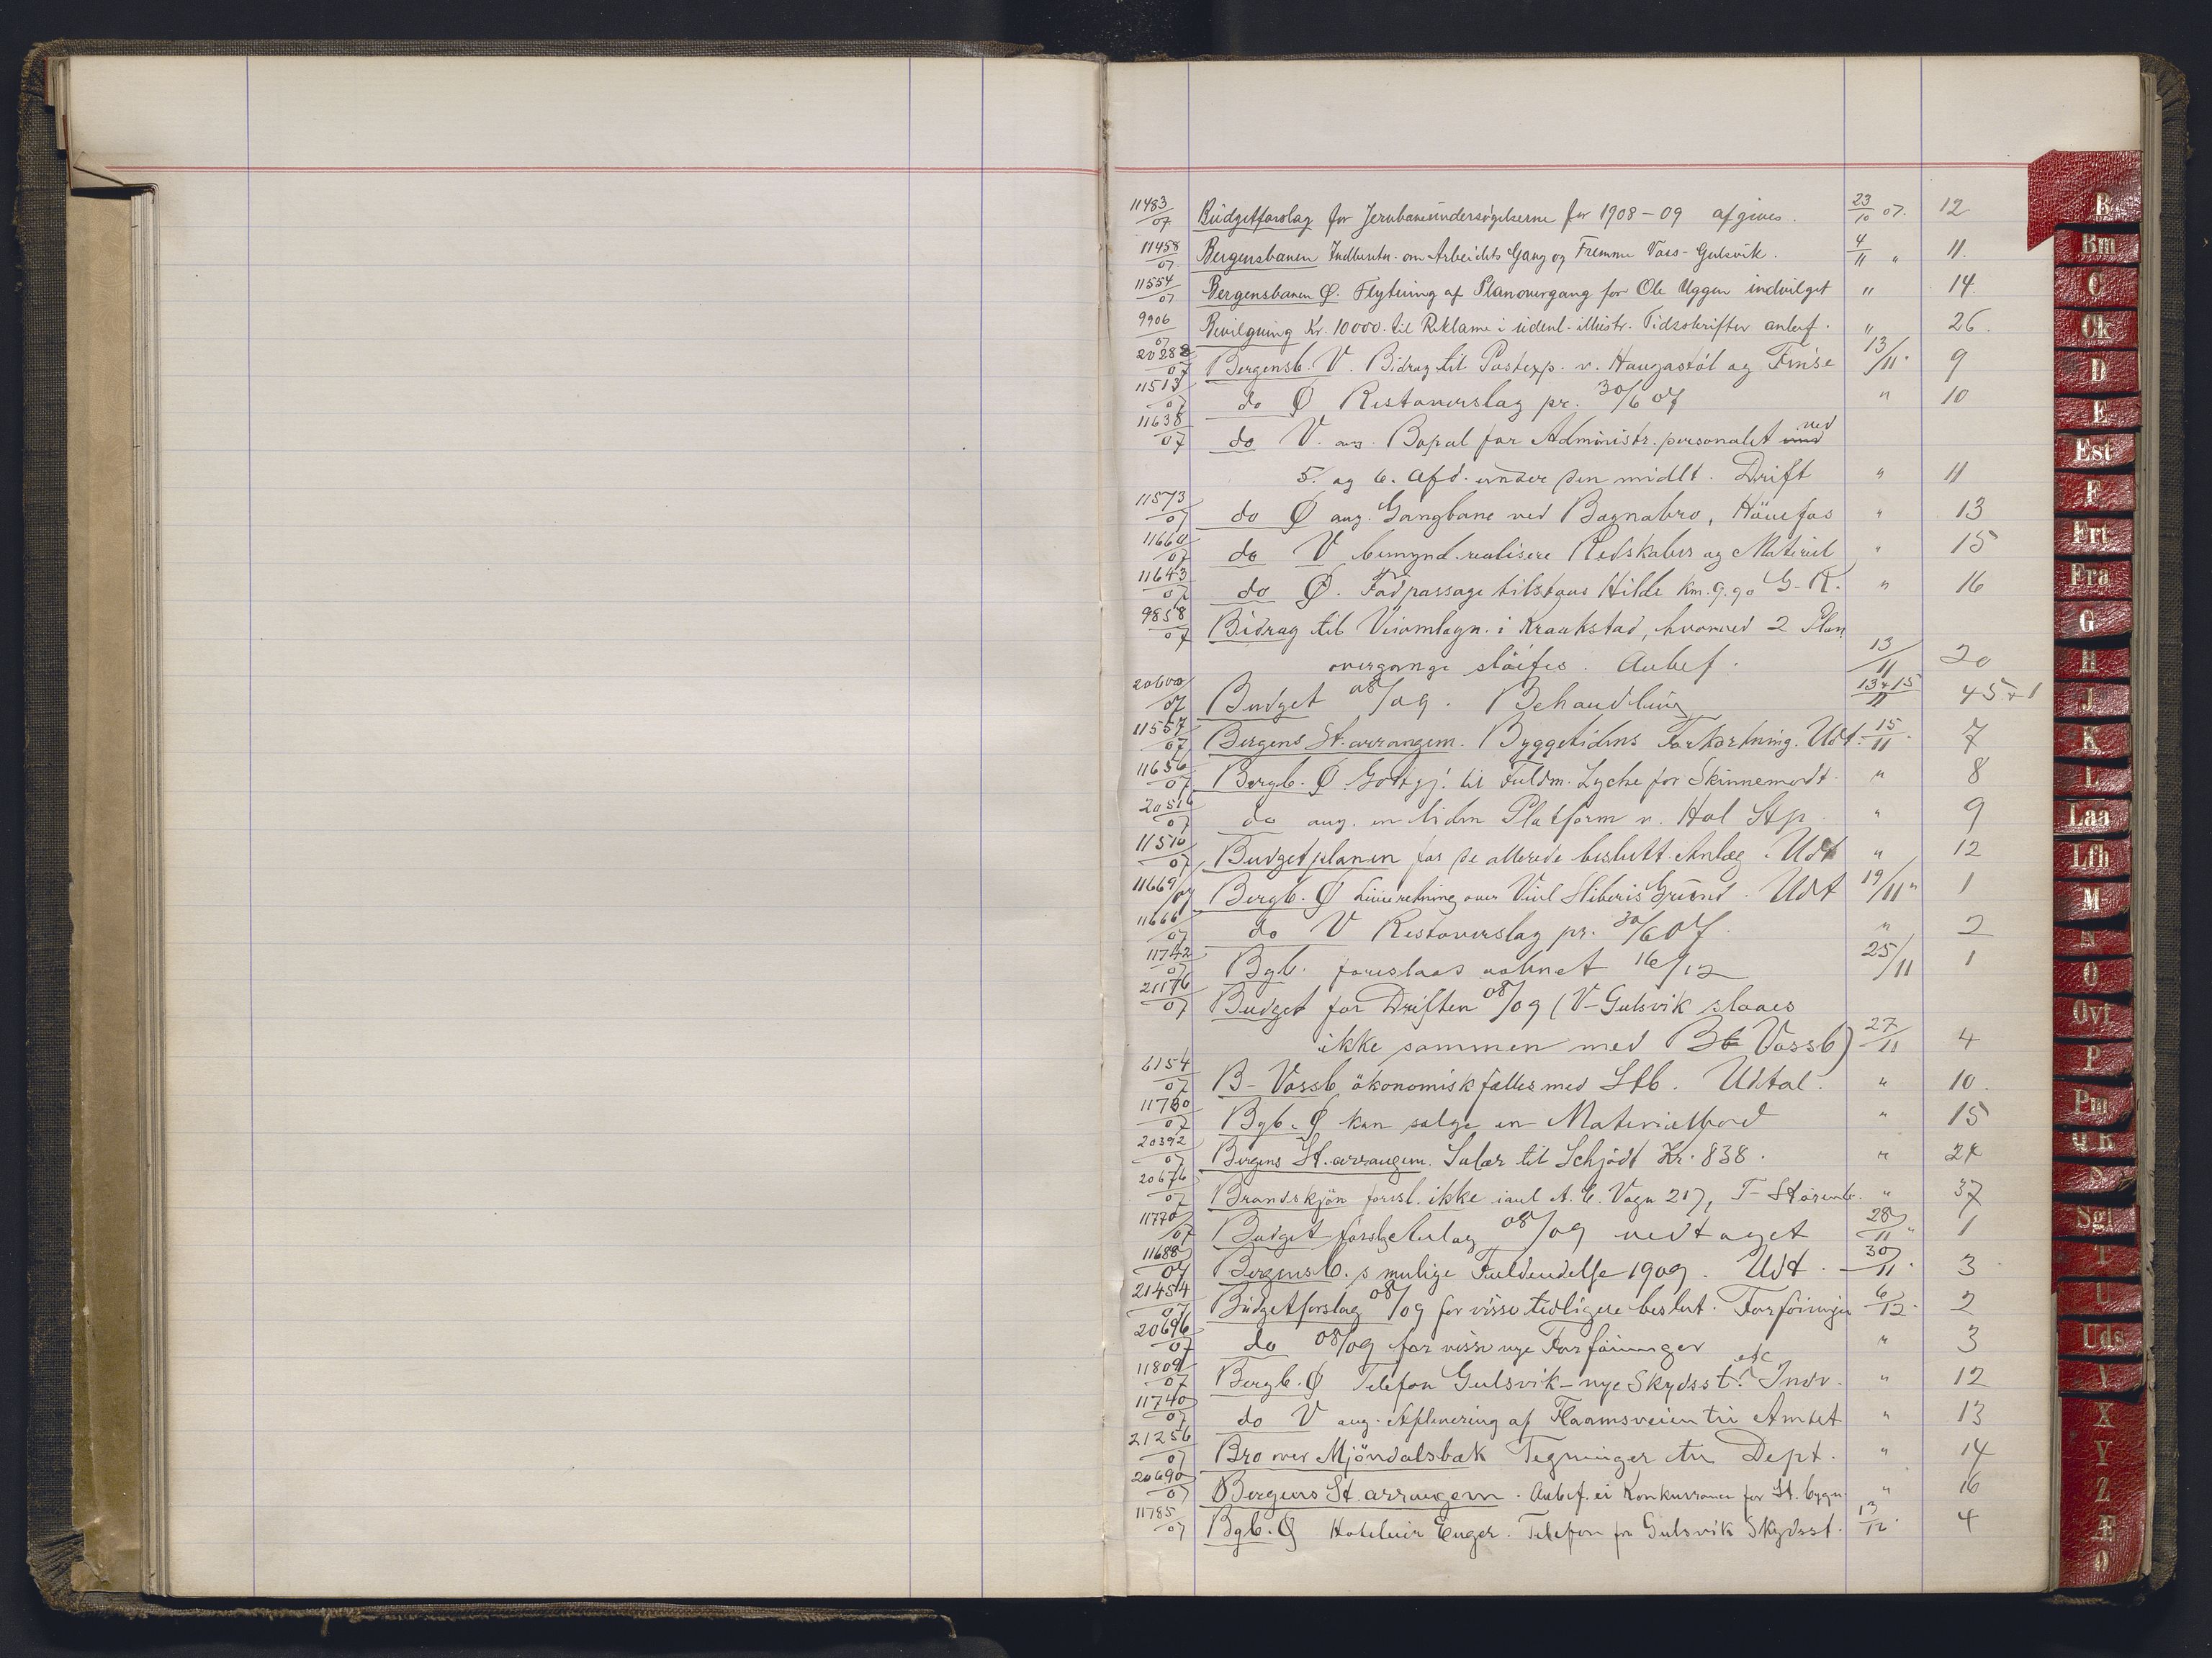 11483/07 Budgetforslag for Jernbaneundersøgelserne for 1908-09 afgives. 23/10 07. 12
11458/07 Bergensbanen Indberetn. om Arbeidets Gang og Fremme Voss-Gulsvik. 4/11 " 11.
11554/07 Bergensbanen Ø. Flytning af Planovergang for Ole Uggen indvilget " 14.
9906/07 Bevilgning Kr. 10000. til Reklame i udenl. illustr. Tidsskrifter anbef. " 26.
20288/07 Bergensb. V. Bidrag til Postexp. v. Haugastøl og Finse 13/11. 9
11513/07 do Ø Restoverslag pr. 30/6 07 " 10
11638/07 do V. ang. Bopæl for Administr. personalet ved
5. og 6. Afd. under den midlt. Drift " 11
11573/07 do Ø ang. Gangbane ved Bægnabro, Hönefos " 13
11660/07 do V bemynd. realisere Redskaber og Materiel " 15
11643/07 do Ø. Fodpassage tilstaaes Hilde Km. 9.90 G-R. " 16
9858/07 Bidrag til Veiomlægn. i Kraakstad, hvorved 2 Plan
overgange slöifes. Anbef. 13/11 20
20600/07 Budget 08/09. Behandling 13+15/11 45+1
11557/07 Bergens St.arrangem. Byggetidens Forkortning. Udt. 15/11. 7
11656/07 Bergb. Ø Godtgj. til Fuldm. Lyche for Skinnemodt. " 8
20516/07 do ang. en liden Platform v. Hol Stp. " 9
11510/07 Budgetplanen for de allerede beslutt. Anlæg. Udt " 12
11669/07 Bergb. Ø Linieretning over Viul Sliberis Grund. Udt 19/11 " 1
11666/07 do V Restoverslag pr. 30/6 07. " 2
11742/07 Bgb. foreslaas aabnet 16/12 25/11 1
21176/07 Budget for Driften 08/09 (V-Gulsvik slaaes
ikke sammen med B Vossb) 27/11 4
6154/07 B-Vossb. ökonomisk fælles med Stb. Udtal. " 10.
11730/07 Bgb. Ø kan sælge en Materialbod " 15
20392/07 Bergens St.arrangem. Salær til Schjödt Kr. 838. " 24
20676/07 Brandskjön foresl. ikke A. E. Vogn 217, T-Störenb. " 37
11770/07 Budget forslag 08/09 vedtaget 28/11 " 1
11688/07 Bergensb.s mulige Fuldendelse 1909. Udt. 30/11. 3
21454/07 Budgetforslag 08/09 for visse tidligere beslut. Forföininger 6/12. 2
20696/07 do 08/09 for visse nye Forföininger " 3
11809/07 Bergb. Ø Telefon Gulsvik-nye Skydsst. etc Indv. " 12
11740/07 do V ang. Aflevering af Flaamsveien til Amtet " 13
21256/07 Bro over Mjöndalsbæk Tegninger Dept. " 14
20690/07 Bergens St.arrangem. Anbef. ei Konkurrance for St. bygn. " 16
11785/07 Bgb. Ø Hoteleier Enger. Telefon fra Gulsvik Skydsst. 13/12. 4
B
Bm
C
Ck
D
E
Est
F
Frt
Fra
G
H
J
K
L
Laa
Lfh
M
N
O
Ovf
P
Pm
Q R
S
Sgl
T
U
Uds
V
X
Y
Z
Æ
Ø